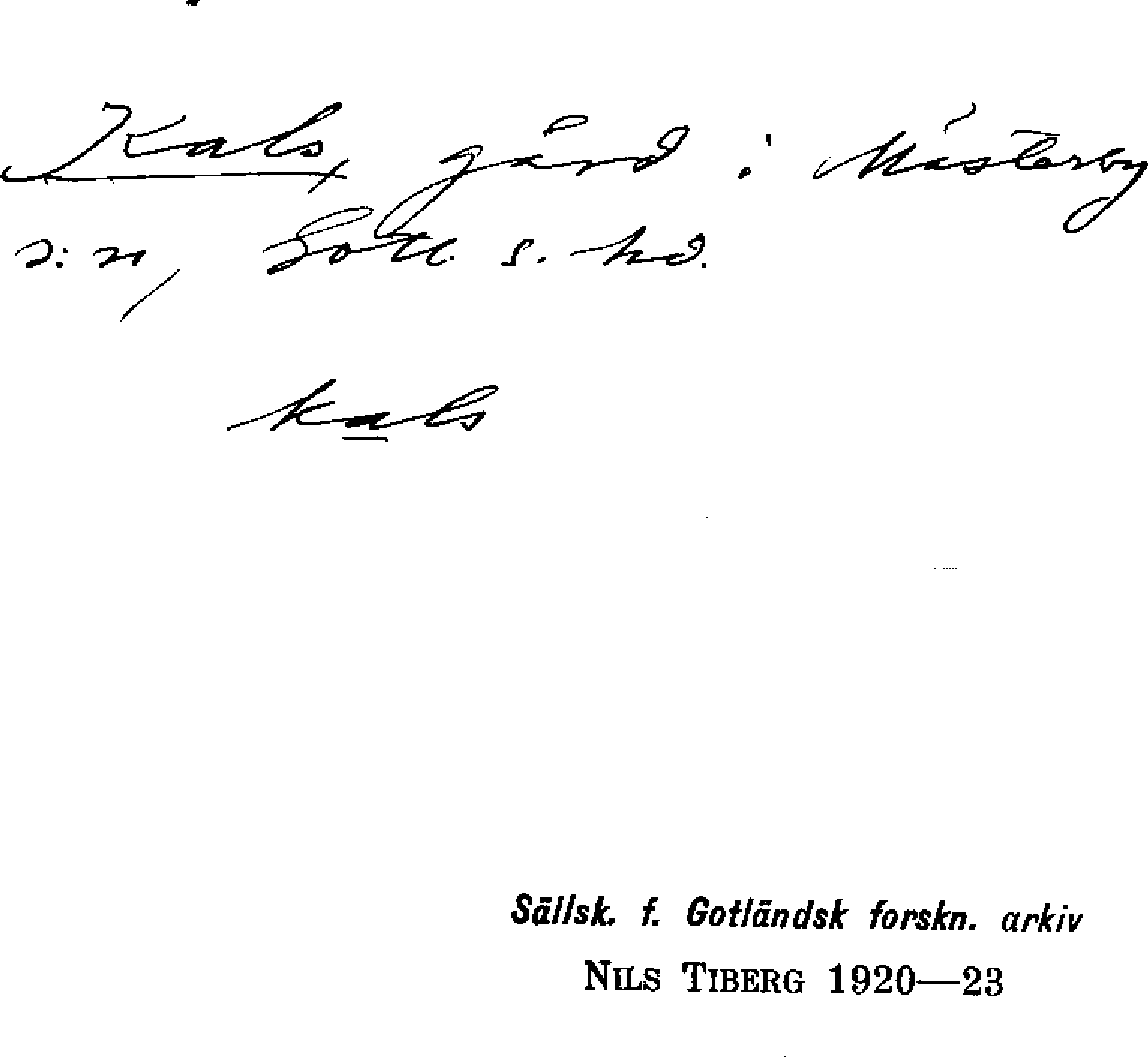 Kals, gård i Mästerby
s:n, Gotl. s. hd.
kals
Sällsk. f. Gotländsk forskn. arkiv
NILS TIBERG 1920—23